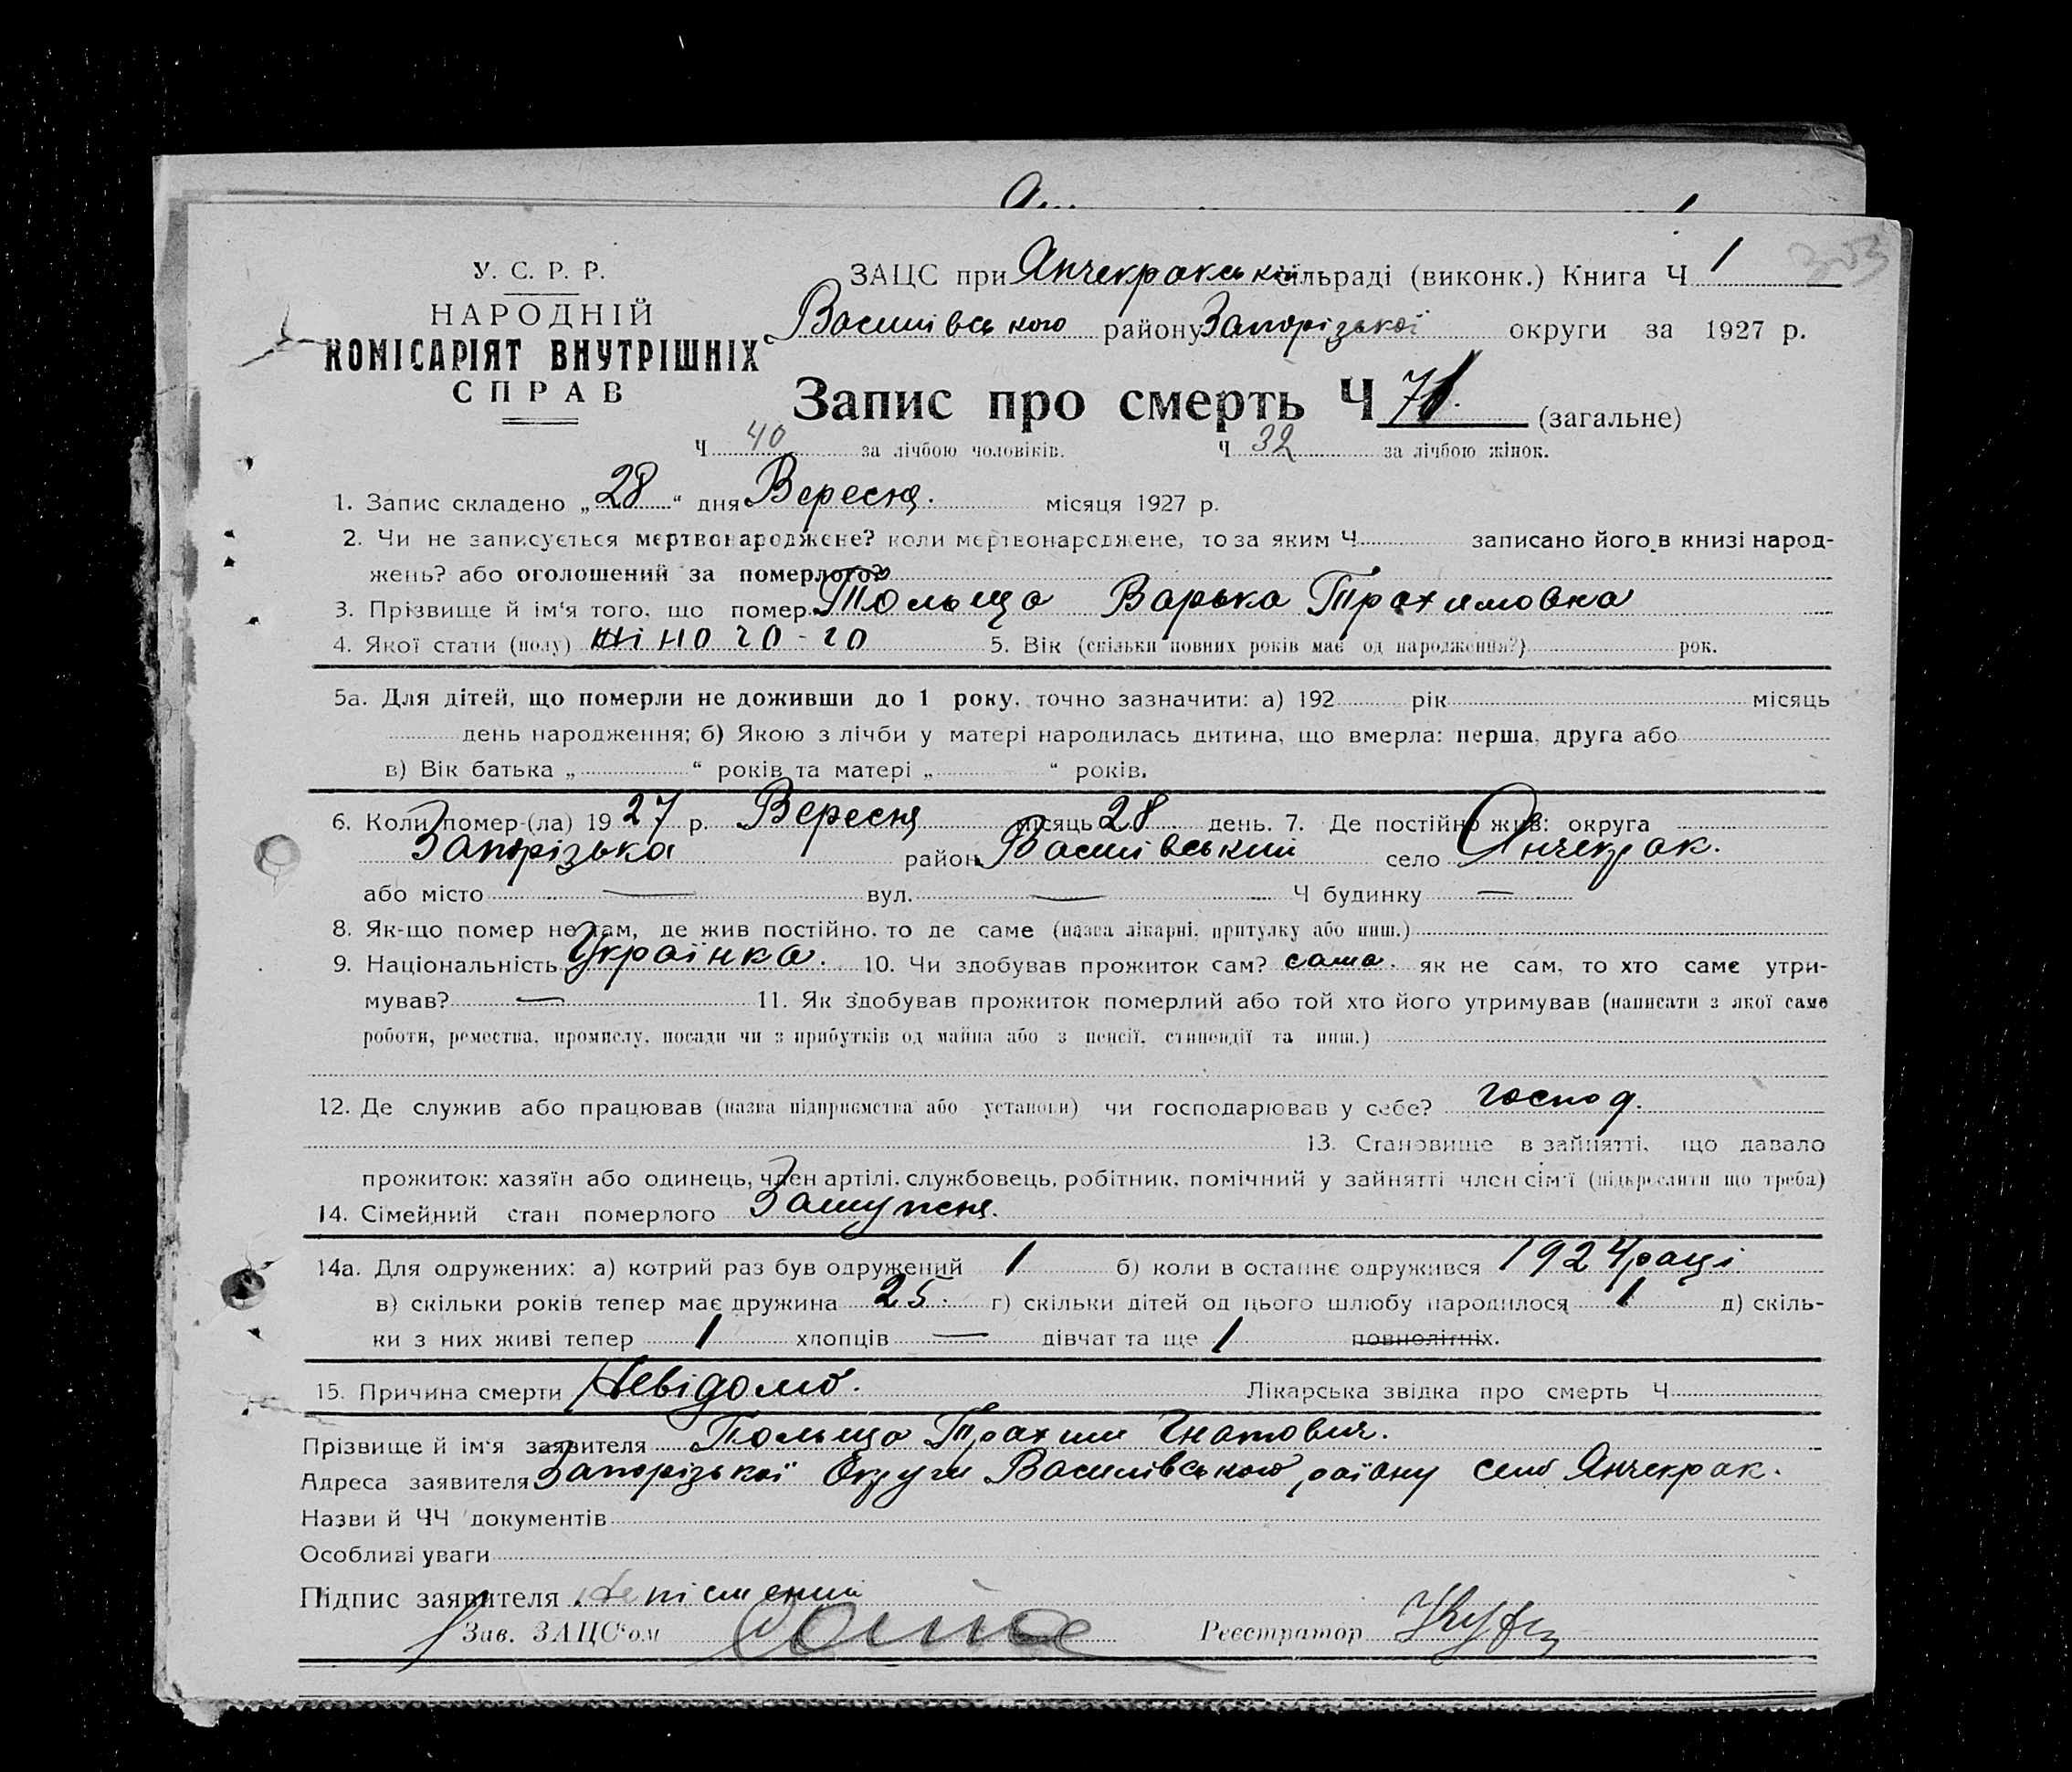 У. С. Р. Р.
НАРОДНІЙ
КОМІСАРІЯТ ВНУТРІШНІХ
СПРАВ
ЗАЦС при Янчекракській сільраді (виконк.) Книга Ч 1
Василівського району Запорізької округи за 1927 р.
Запис про смерть Ч 71. (загальне)
Ч 40 за лічбою чоловіків. Ч 32 за лічбою жінок.
1. Запис складено „28“ дня Вересня. місяця 1927 р.
2. Чи не записується мертвонароджене? коли мертвонароджене, то за яким Ч записано його в книзі народ-
жень? або оголошений за померлого?
3. Прізвище й ім'я того, що помер Польща Варька Трахимовна
4. Якої стати (полу) жіного-го 5. Вік (скільки повних років має од народження?) рок.
5а. Для дітей, що померли не доживши до 1 року, точно зазначити: а) 192 рік місяць
день народження; б) Якою з лічби у матері народилась дитина, що вмерла: перша, друга або
в) Вік батька „ “ років та матері „ “ років.
6. Коли помер-(ла) 1927 р. Вересня місяць 28 день. 7. Де постійно жив: округа
Запорізька район Василівський село Янчекрак.
або місто — вул. — Ч будинку —
8. Як-що помер не там, де жив постійно, то де саме (назва лікарні, притулку або инш.)
9. Національність Українка. 10. Чи здобував прожиток сам? сама. як не сам, то хто саме утри-
мував? — 11. Як здобував прожиток померлий або той хто його утримував (написати з якої саме
роботи, ремества, промислу, посади чи з прибутків од майна або з пенсії, стипендії та инш.)
12. Де служив або працював (назва підприємства або установи) чи господарював у себе? господ.
13. Становище в зайнятті, що давало
прожиток: хазяїн або одинець, член артілі, службовець, робітник, помічний у зайнятті член сім'ї (підкреслити що треба)
14. Сімейний стан померлого Замужня.
14а. Для одружених: а) котрий раз був одружений 1 б) коли в останнє одружився 1924 році
в) скільки років тепер має дружина 25. г) скільки дітей од цього шлюбу народилося 1 д) скіль-
ки з них живі тепер 1 хлопців — дівчат та ще 1 повнолітніх.
15. Причина смерти Невідомо. Лікарська звідка про смерть Ч
Прізвище й ім'я заявителя Польща Трахим Гнатович.
Адреса заявителя Запорізької Округи Василівського району село Янчекрак.
Назви й ЧЧ документів
Особливі уваги
Підпис заявителя Непісменний
Зав. ЗАЦС'ом
Реєстратор